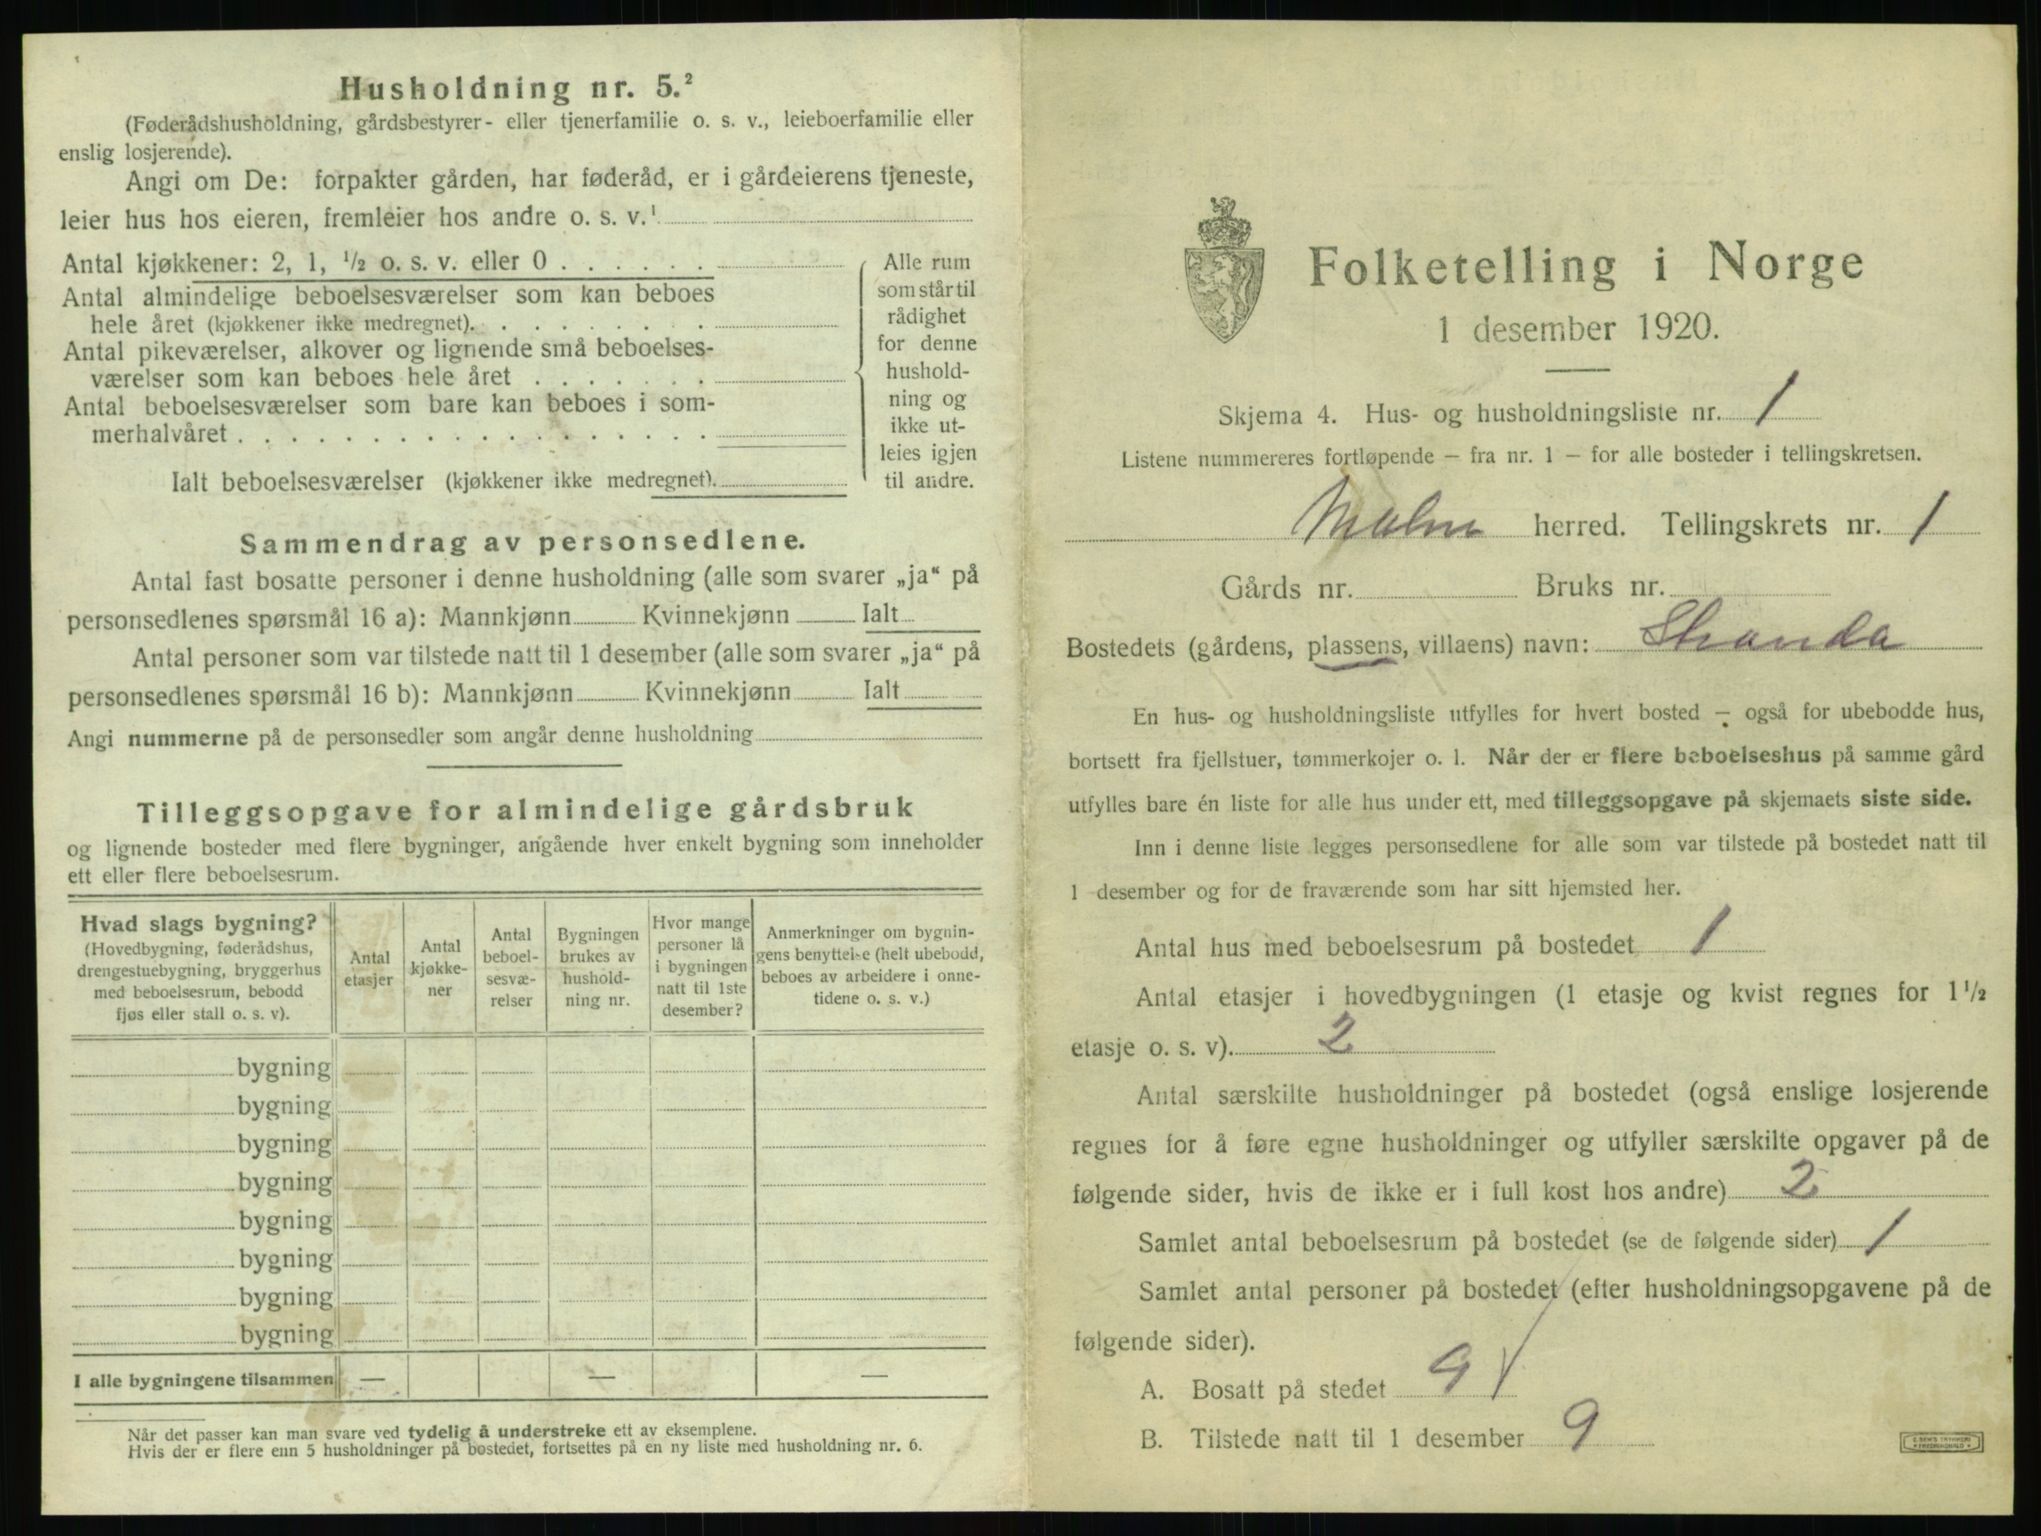 Husholdning nr. 5.²
(Føderådshusholdning, gårdsbestyrer- eller tjenerfamilie o. s. v., leieboerfamilie eller
enslig losjerende).
Angi om De: forpakter gården, har føderåd, er i gårdeierens tjeneste,
leier hus hos eieren, fremleier hos andre o. s. v.¹
Antal kjøkkener: 2, 1, ½ o. s. v. eller 0 . . . . . .
Antal almindelige beboelsesværelser som kan beboes
hele året (kjøkkener ikke medregnet). . . . . . . .
Antal pikeværelser, alkover og lignende små beboelses-
værelser som kan beboes hele året . . . . . . .
Antal beboelsesværelser som bare kan beboes i som-
merhalvåret . . . . . . . . . . . . . . . . . .
Ialt beboelsesværelser (kjøkkener ikke medregnet).
Alle rum
som står til
rådighet
for denne
hushold-
ning og
ikke ut-
leies igjen
til andre.
Sammendrag av personsedlene.
Antal fast bosatte personer i denne husholdning (alle som svarer „ja“ på
personsedlenes spørsmål 16 a): Mannkjønn Kvinnekjønn Ialt
Antal personer som var tilstede natt til 1 desember (alle som svarer „ja“ på
personsedlenes spørsmål 16 b): Mannkjønn Kvinnekjønn Ialt
Angi nummerne på de personsedler som angår denne husholdning
Tilleggsopgave for almindelige gårdsbruk
og lignende bosteder med flere bygninger, angående hver enkelt bygning som inneholder
ett eller flere beboelsesrum.
Hvad slags bygning?
(Hovedbygning, føderådshus,
drengestuebygning, bryggerhus
med beboelsesrum, bebodd
fjøs eller stall o. s. v).
Antal
etasjer
Antal
kjøkke-
ner
Antal
beboel-
sesvæ-
relser
Bygningen
brukes av
hushold-
ning nr.
Hvor mange
personer lå
i bygningen
natt til 1ste
desember?
Anmerkninger om bygnin-
gens benyttelse (helt ubebodd,
beboes av arbeidere i onne-
tidene o. s. v.)
bygning
bygning
bygning
bygning
bygning
bygning
bygning
bygning
I alle bygningene tilsammen — — —
Når det passer kan man svare ved tydelig å understreke ett av eksemplene.
Hvis der er flere enn 5 husholdninger på bostedet, fortsettes på en ny liste med husholdning nr. 6.
Folketelling i Norge
1 desember 1920.
Skjema 4. Hus- og husholdningsliste nr. 1
Listene nummereres fortløpende — fra nr. 1 — for alle bosteder i tellingskretsen.
Malm herred. Tellingskrets nr. 1
Gårds nr. Bruks nr.
Bostedets (gårdens, plassens, villaens) navn: Stranda
En hus- og husholdningsliste utfylles for hvert bosted — også for ubebodde hus,
bortsett fra fjellstuer, tømmerkojer o. l. Når der er flere beboelseshus på samme gård
utfylles bare én liste for alle hus under ett, med tilleggsopgave på skjemaets siste side.
Inn i denne liste legges personsedlene for alle som var tilstede på bostedet natt til
1 desember og for de fraværende som har sitt hjemsted her.
Antal hus med beboelsesrum på bostedet 1
Antal etasjer i hovedbygningen (1 etasje og kvist regnes for 1½
etasje o. s. v). 2
Antal særskilte husholdninger på bostedet (også enslige losjerende
regnes for å føre egne husholdninger og utfyller særskilte opgaver på de
følgende sider, hvis de ikke er i full kost hos andre) 2
Samlet antal beboelsesrum på bostedet (se de følgende sider) 1
Samlet antal personer på bostedet (efter husholdningsopgavene på de
følgende sider).
A. Bosatt på stedet 9
B. Tilstede natt til 1 desember 9